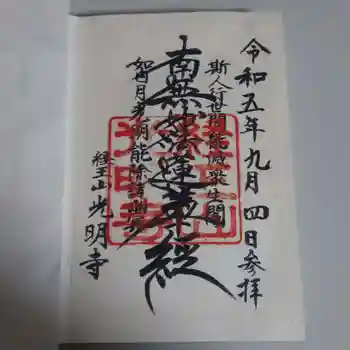 令和五年九月四日参拝
斯人行世間能滅衆生闇
南無妙法蓮華経
如日月光明能除諸幽冥
経王山光明寺